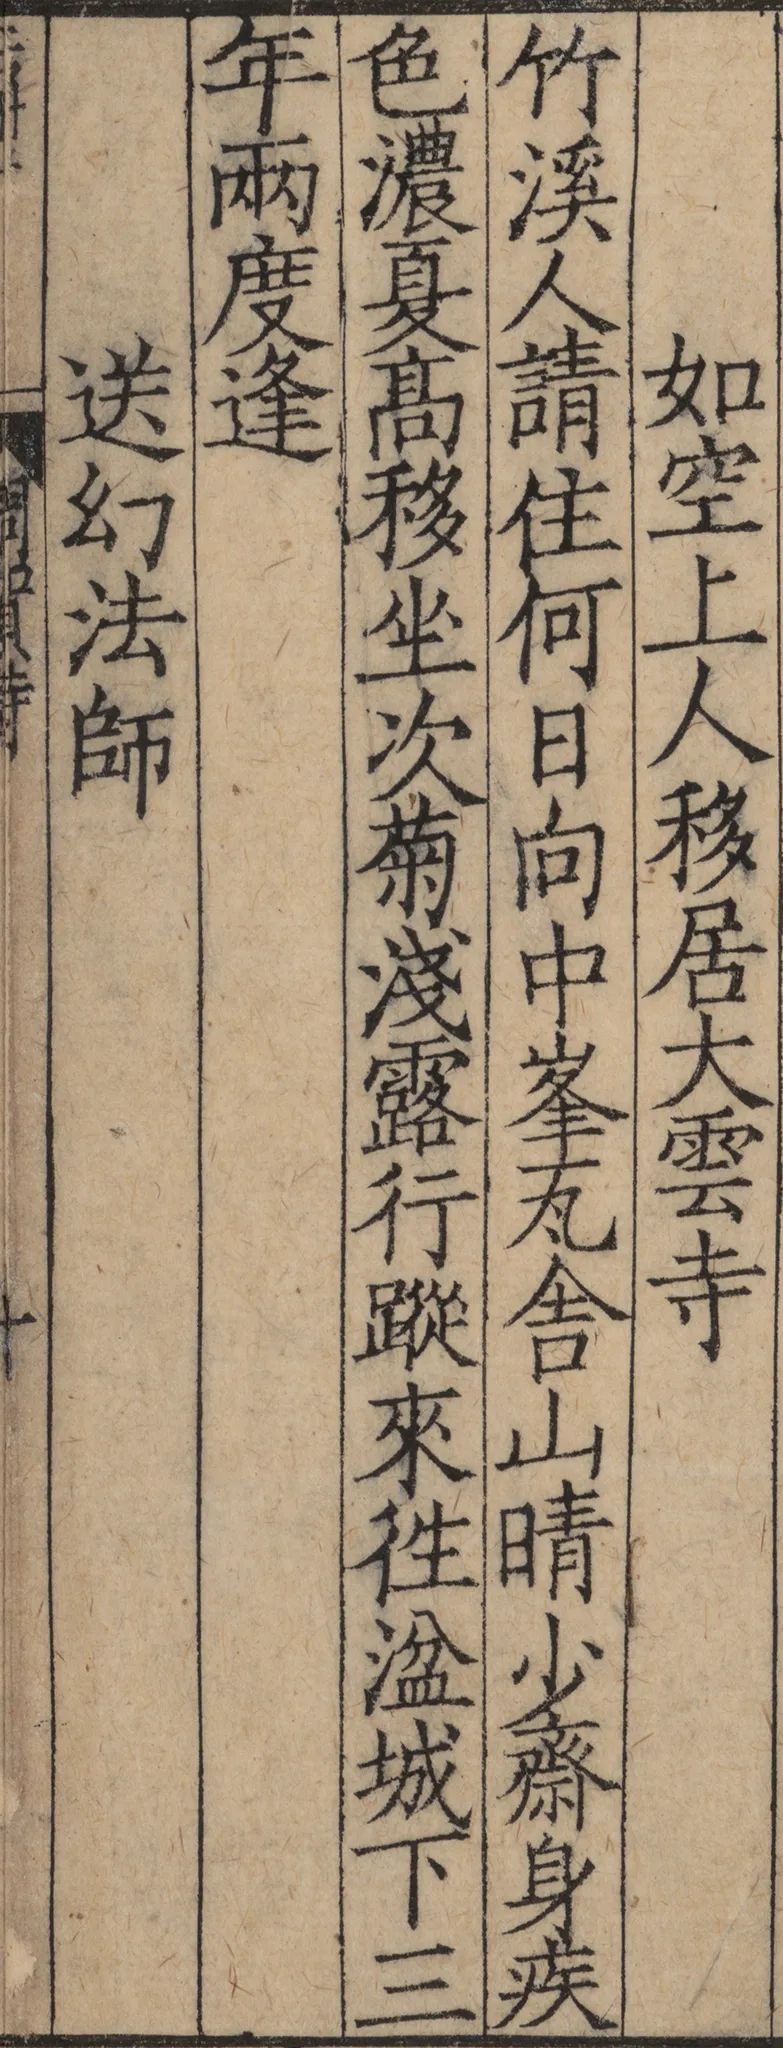 如空上人移居大雲寺
竹溪人請住何日向中峯瓦舍山晴少齋身疾
色濃夏髙移坐次菊淺露行蹤來徃湓城下三
年兩度逢
送幻法師
周賀詩
十